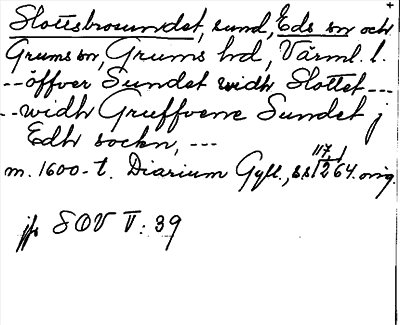 Slottsbrosundet, sund, Eds sn och
Grums sn, Grums hd, Värml. l.
--- öffver Sundet widh Slottet ---
-- widh Gruffvene Sundet j
Edh sockn, ---
m. 1600-t. Diarium Gyll., s. 117, 264. orig.
jfr SOV V: 39